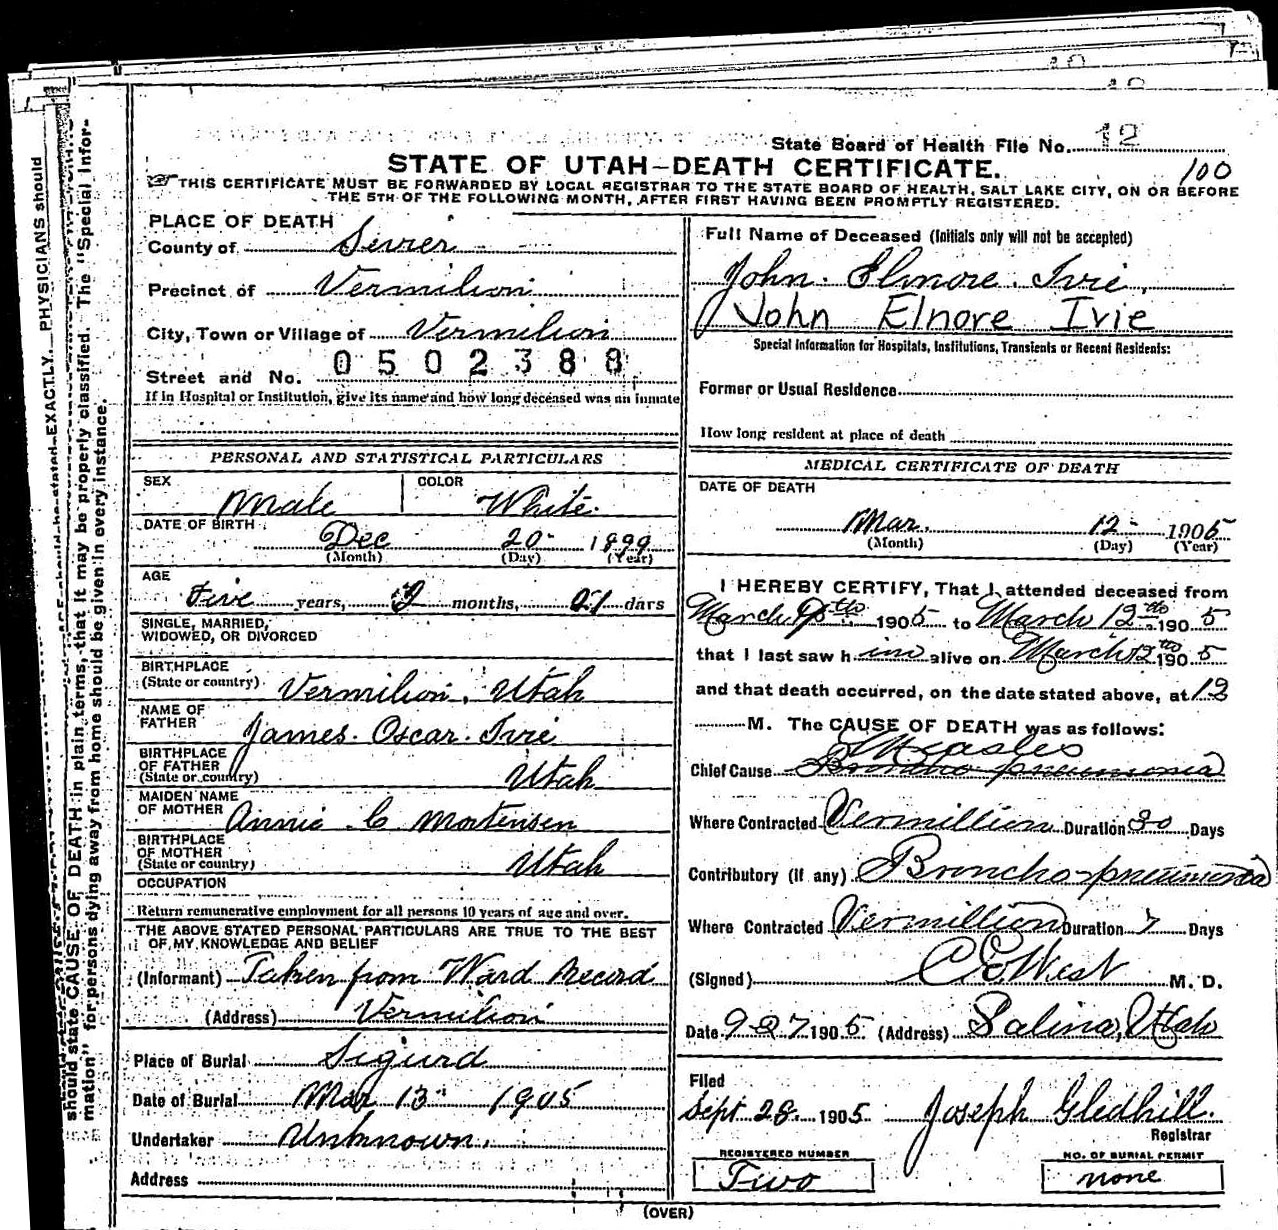 State Board of Health File No. 12
100
STATE OF UTAH—DEATH CERTIFICATE.
THIS CERTIFICATE MUST BE FORWARDED BY LOCAL REGISTRAR TO THE STATE BOARD OF HEALTH, SALT LAKE CITY, ON OR BEFORE
THE 5TH OF THE FOLLOWING MONTH, AFTER FIRST HAVING BEEN PROMPTLY REGISTERED.
PLACE OF DEATH
County of Sevier
Precinct of Vermilion
City, Town or Village of Vermilion
0502388
Street and No.
If in Hospital or Institution, give its name and how long deceased was an inmate
PERSONAL AND STATISTICAL PARTICULARS
SEX Male
COLOR White
DATE OF BIRTH
Dec 20 1899
(Month) (Day) (Year)
AGE
Five years, 2 months, 21 days
SINGLE, MARRIED,
WIDOWED, OR DIVORCED
BIRTHPLACE
(State or country) Vermilion, Utah
NAME OF
FATHER James Oscar Ivie
BIRTHPLACE
OF FATHER
(State or country) Utah
MAIDEN NAME
OF MOTHER Annie C Mortensen
BIRTHPLACE
OF MOTHER
(State or country) Utah
OCCUPATION
Return remunerative employment for all persons 10 years of age and over.
THE ABOVE STATED PERSONAL PARTICULARS ARE TRUE TO THE BEST
OF MY KNOWLEDGE AND BELIEF
(Informant) Taken from Ward Record
(Address) Vermilion
Place of Burial Sigurd
Date of Burial Mar 13 1905
Undertaker Unknown.
Address
Full Name of Deceased (Initials only will not be accepted)
John Elnore Ivie
John Elnore Ivie
Special Information for Hospitals, Institutions, Transients or Recent Residents:
Former or Usual Residence
How long resident at place of death
MEDICAL CERTIFICATE OF DEATH
DATE OF DEATH
Mar. 12 1905
(Month) (Day) (Year)
I HEREBY CERTIFY, That I attended deceased from
March 1905 to March 12th 1905
that I last saw him alive on March 12th 1905
and that death occurred, on the date stated above, at 12
M. The CAUSE OF DEATH was as follows:
Measles
Chief Cause Broncho pneumonia
Where Contracted Vermillion Duration 30 Days
Contributory (if any) Broncho-pneumonia
Where Contracted Vermillion Duration 7 Days
(Signed) C E West M. D.
Date 9 27 1905 (Address) Salina, Utah
Filed
Sept 28 1905 Joseph Gledhill.
Registrar
REGISTERED NUMBER
Two
NO. OF BURIAL PERMIT
none
(OVER)
EXACTLY. PHYSICIANS should
should state CAUSE OF DEATH in plain terms, that it may be properly classified. The "Special Infor-
mation" for persons dying away from home should be given in every instance.